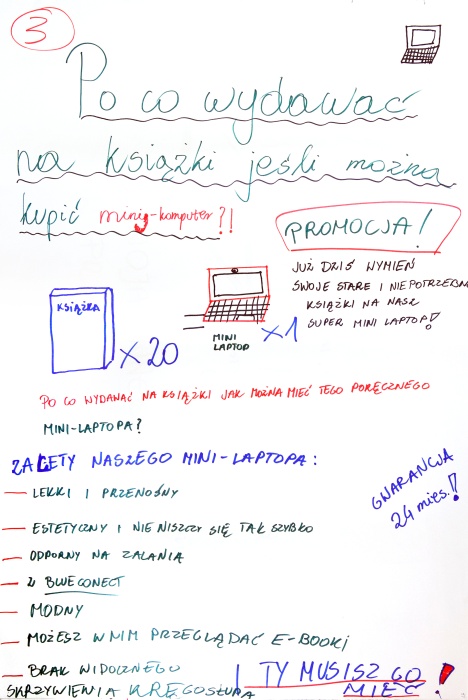 3
Po co wydawać
na książki jeśli można
kupić mini-komputer?!
PROMOCJA!
JUŻ DZIŚ WYMIEŃ
SWOJE STARE I NIEPOTRZEBN
KSIĄŻKI NA NASZ
SUPER MINI LAPTOP!
KSIĄŻKA
x 20
MINI
LAPTOP
x1
PO CO WYDAWAĆ NA KSIĄŻKI JAK MOŻNA MIEĆ TEGO PORĘCZNEGO
MINI-LAPTOPA?
ZALETY NASZEGO MINI-LAPTOPA:
GWARANCJA
24 mies.!
— LEKKI I PRZENOŚNY
— ESTETYCZNY I NIE NISZCZY SIĘ TAK SZYBKO
— ODPORNY NA ZALANIA
— Z BLUECONECT
— MODNY
— MOŻESZ W NIM PRZEGLĄDAĆ E-BOOKI
— BRAK WIDOCZNEGO
SKRZYWIENIA KRĘGOSŁUPA
TY MUSISZ GO
MIEĆ!